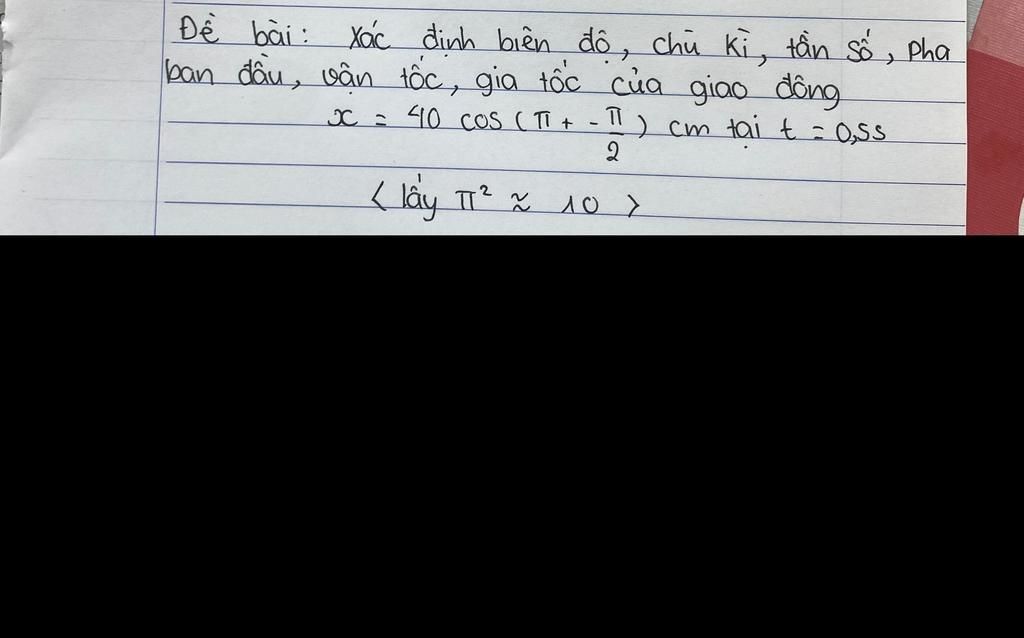 Đề bài: Xác định biên độ, chũ kì, tần số, pha
ban đầu, vận tốc, gia tốc của giao đông
x = 40 cos (π + - π/2) cm tại t = 0,5s
< lấy π² ≈ 10 >